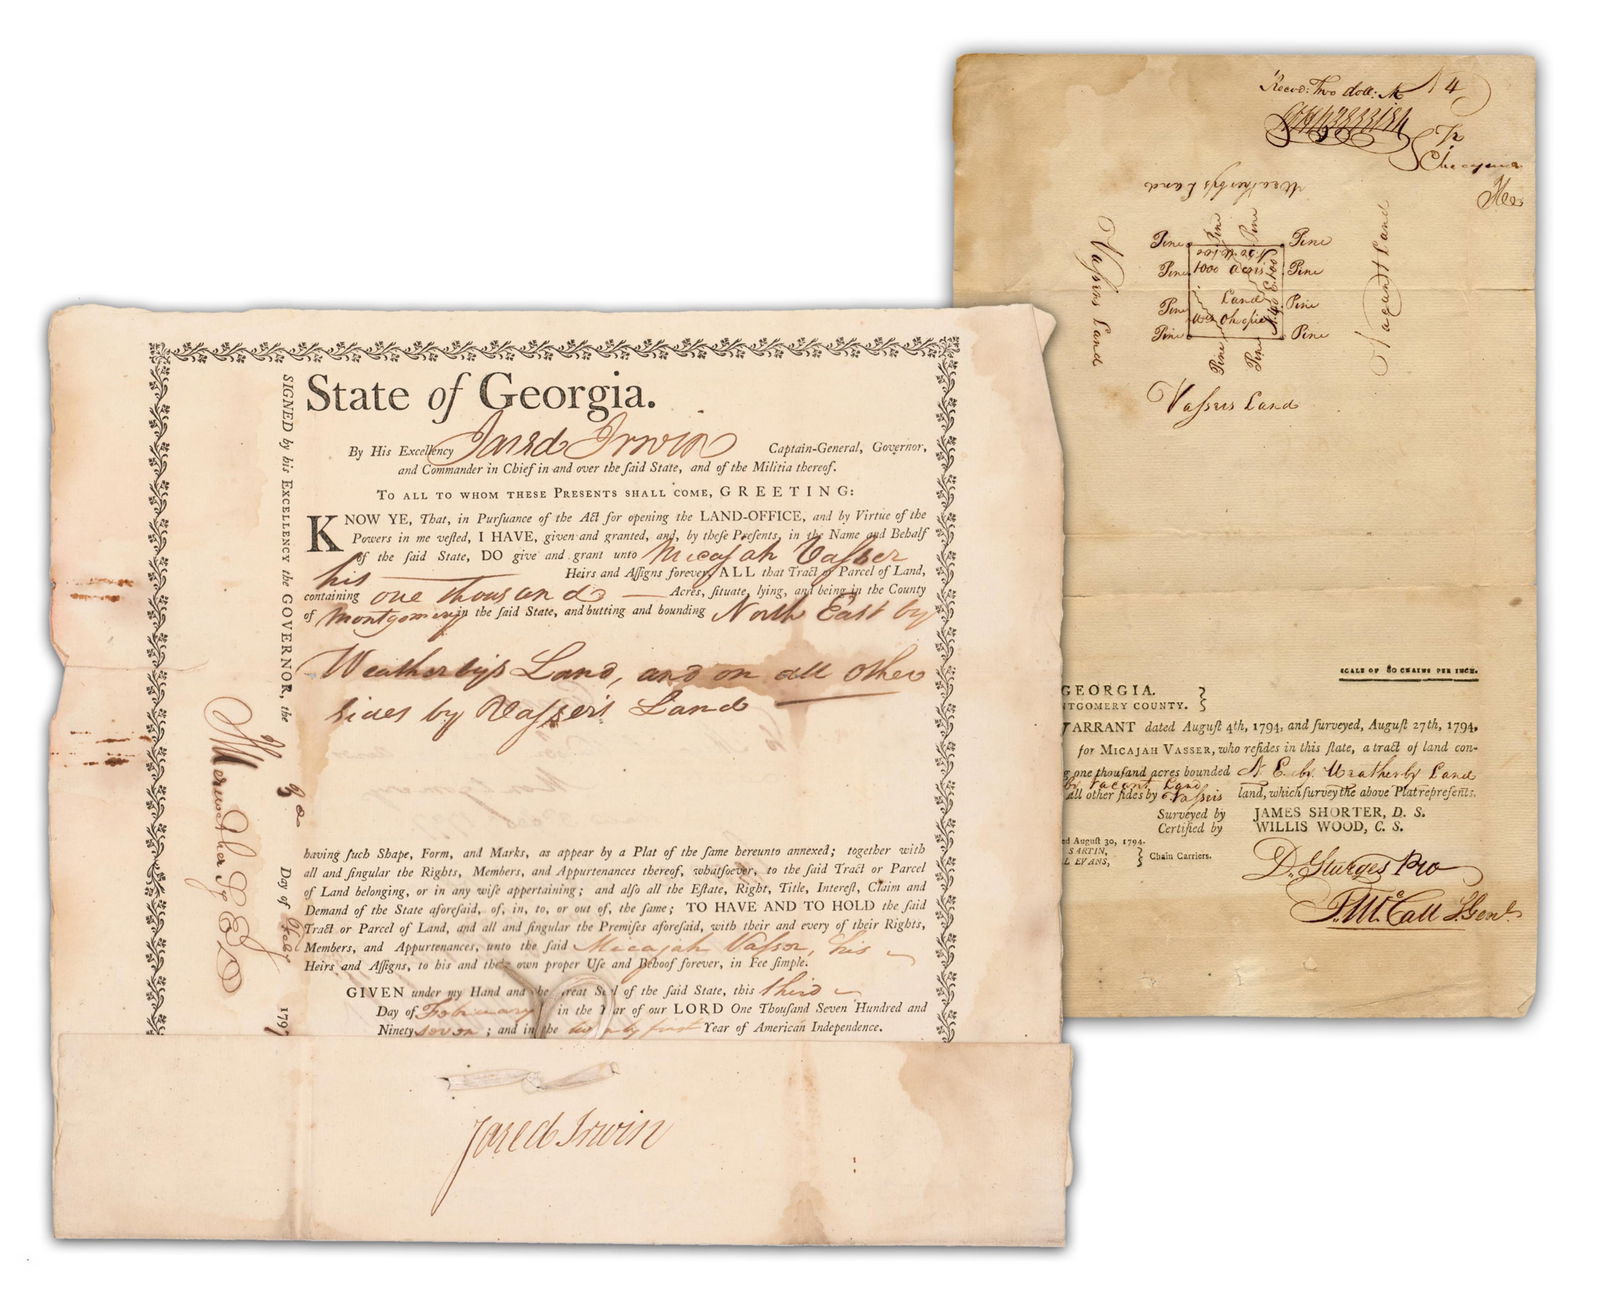 State of Georgia.
By His Excellency Jared Irwin Captain-General, Governor,
and Commander in Chief in and over the said State, and of the Militia thereof.
TO ALL TO WHOM THESE PRESENTS SHALL COME, GREETING:
KNOW YE, That, in Pursuance of the Act for opening the LAND-OFFICE, and by Virtue of the
Powers in me vested, I HAVE, given and granted, and, by these Presents, in the Name and Behalf
of the said State, DO give and grant unto Micajah Vasser
his Heirs and Assigns forever, ALL that Tract or Parcel of Land,
containing one thousand Acres, situate, lying, and being in the County
of Montgomery in the said State, and butting and bounding North East by
Weatherby's Land, and on all other
sides by Vasser's Land
having such Shape, Form, and Marks, as appear by a Plat of the same hereunto annexed; together with
all and singular the Rights, Members, and Appurtenances thereof, whatsoever, to the said Tract or Parcel
of Land belonging, or in any wise appertaining; and also all the Estate, Right, Title, Interest, Claim and
Demand of the State aforesaid, of, in, to, or out of, the same; TO HAVE AND TO HOLD the said
Tract or Parcel of Land, and all and singular the Premises aforesaid, with their and every of their Rights,
Members, and Appurtenances, unto the said Micajah Vasser, his
Heirs and Assigns, to his and their own proper Use and Behoof forever, in Fee simple.
GIVEN under my Hand and the Great Seal of the said State, this third
Day of February in the Year of our LORD One Thousand Seven Hundred and
Ninety seven; and in the twenty first Year of American Independence.
Jared Irwin
SIGNED by his Excellency the GOVERNOR, the 3d Day of Feby 1797
Recvd: Two doll:
Weatherby's Land
Vassers Land
Vacant Land
Pine Pine
Pine Pine
Pine 1000 acres Pine
Pine Land Pine
Pine Pine
Pine Pine
Vassers Land
SCALE OF 80 CHAINS PER INCH.
GEORGIA.
NTGOMERY COUNTY.
WARRANT dated August 4th, 1794, and surveyed, August 27th, 1794,
for MICAJAH VASSER, who resides in this state, a tract of land con-
g one thousand acres bounded N E by Weatherby Land
by Vacant Land
all other sides by Vassers land, which survey the above Plat represents.
Surveyed by JAMES SHORTER, D. S.
Certified by WILLIS WOOD, C. S.
ed August 30, 1794.
SARTIN,
L EVANS, Chain Carriers.
D. Sturges Pro
T. McCall S Genl.